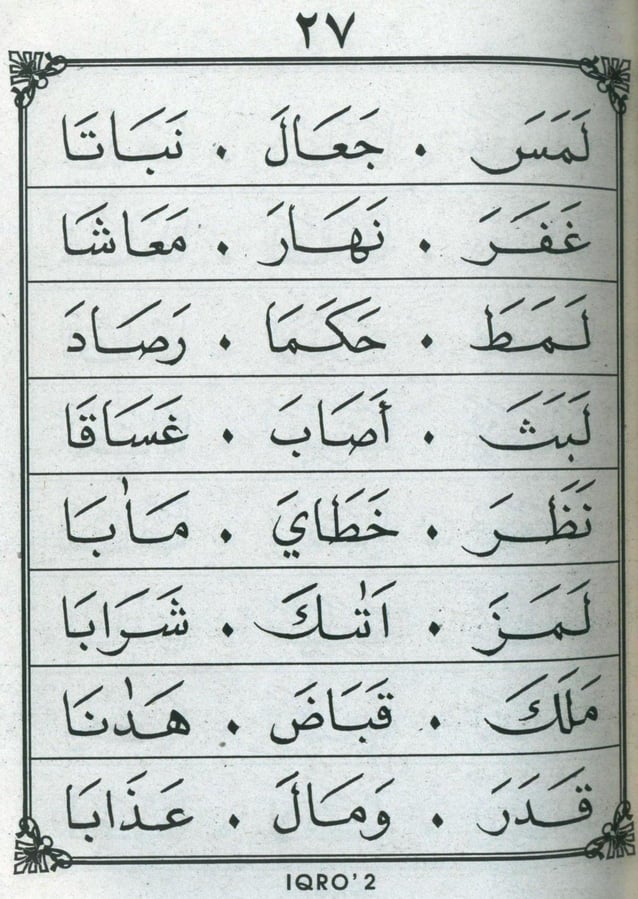 ٢٧
لَمَسَ . جَعَالَ . نَبَاتَا
غَفَرَ . نَهَارَ . مَعَاشَا
لَمَطَ . حَكَمَا . رَصَادَ
لَبَثَ . أَصَابَ . غَسَاقَا
نَظَرَ . خَطَايَ . مَاٰبَا
لَمَزَ . اَتٰكَ . شَرَابَا
مَلَكَ . قَبَاضَ . هَدٰنَا
قَدَرَ . وَمَالَ . عَذَابَا
IQRO' 2